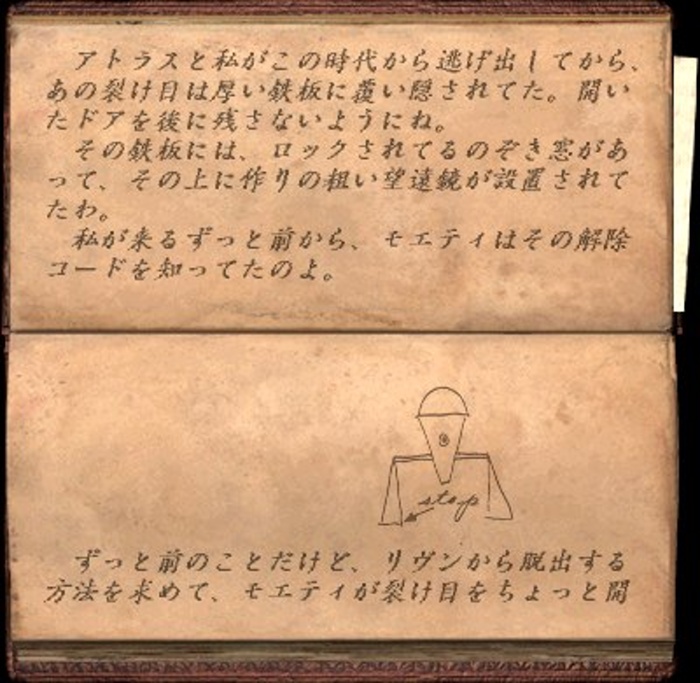 アトラスと私がこの時代から逃げ出してから、
あの裂け目は厚い鉄板に覆い隠されてた。開い
たドアを後に残さないようにね。
その鉄板には、ロックされてるのぞき窓があ
って、その上に作りの粗い望遠鏡が設置されて
たわ。
私が来るずっと前から、モエティはその解除
コードを知ってたのよ。
stop
ずっと前のことだけど、リヴンから脱出する
方法を求めて、モエティが裂け目をちょっと開